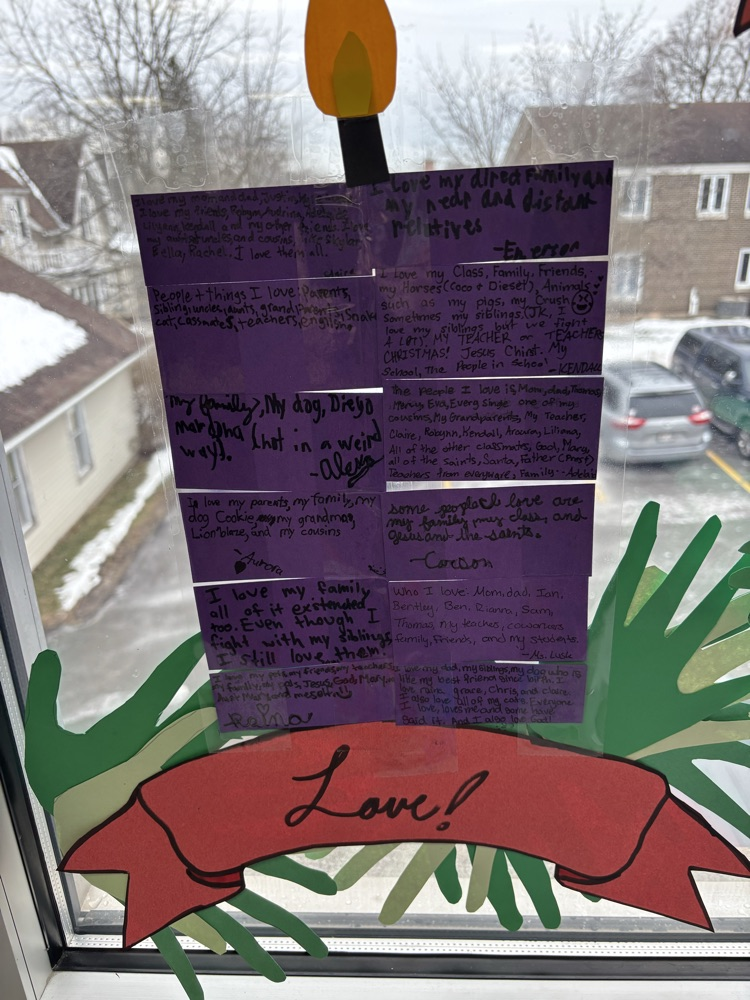 I love my mom, and dad,
I love my friends, Robynn, Audrina,
Kendall and my other friends. I love
my aunts, uncles, and cousins,
Bella, Rachel. I love them all.
Claire
I love my direct family and
my near and distant
relatives
-Emerson
People + things I love: Parents,
siblings, uncles, aunts, grandparents, Snow
cat, classmates, teachers,
I love my Class, Family, Friends,
my Horses (Coco + Diesel), Animals
such as my pigs, my Crush
Sometimes my siblings, (JK, I
love my siblings but we fight
A LOT), MY TEACHER or TEACHERS
CHRISTMAS! Jesus Christ. My
School, The People in School -KENDALL
My family, My dog, Diego
mardona (not in a weird
way).
-Alexa
The people I love is, Mom, dad, Thomas,
Eva, Every single one of my
cousins, My Grandparents, My Teacher,
Claire, Robynn, Kendall, Lillana,
All of the other classmates, God, Mary,
all of the saints, Santa, Father
Teachers from everywhere, Family
I love my parents, my family, my
dog Cookie, my grandmas,
Lionblaze, and my cousins
Aurora
some people I love are
my family my class, and
Jesus and the saints.
-Carson
I love my family
all of it exstended
too. Even though I
fight with my siblings
I still love them.
Who I love: Mom, dad, Ian,
Bentley, Ben, Rianna, Sam,
Thomas, my teachers, coworkers,
family, friends, and my students.
-Ms. Lusk
I love my friends, my teachers,
My family, my pets, Jesus, God,
and meself
Reina
dad, my siblings, my dog who is
like my best friend since birth. I
love grace, Chris, and claire
I also love all of my cats. Everyone
I love, loves me and some have
Said it. And I also love God!
Love!